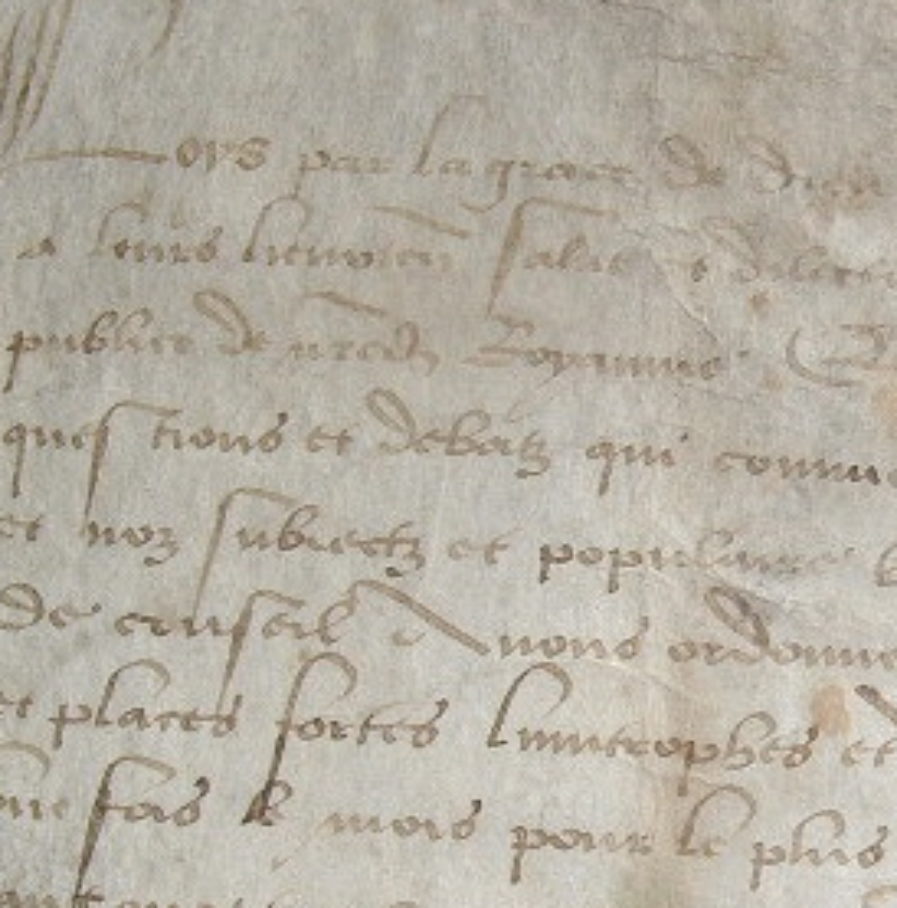 oys par la grace de dieu
a leurs lieuten salut et dilec
publicq de nred Royaume
questions et debatz qui
et noz subiectz et populaire
De conseil Avons
et places fortes limitrophes et
une fois le mois pour le plus